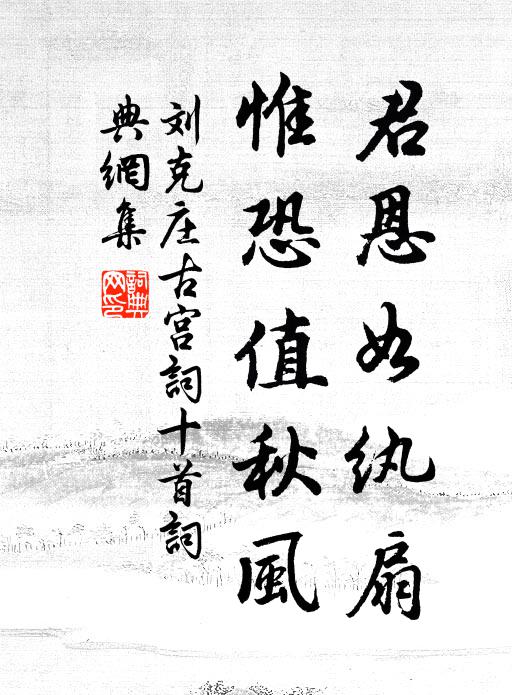 君恩如纨扇
惟恐值秋風
刘克庄古宫詞十首詞
典網集
詞典網印